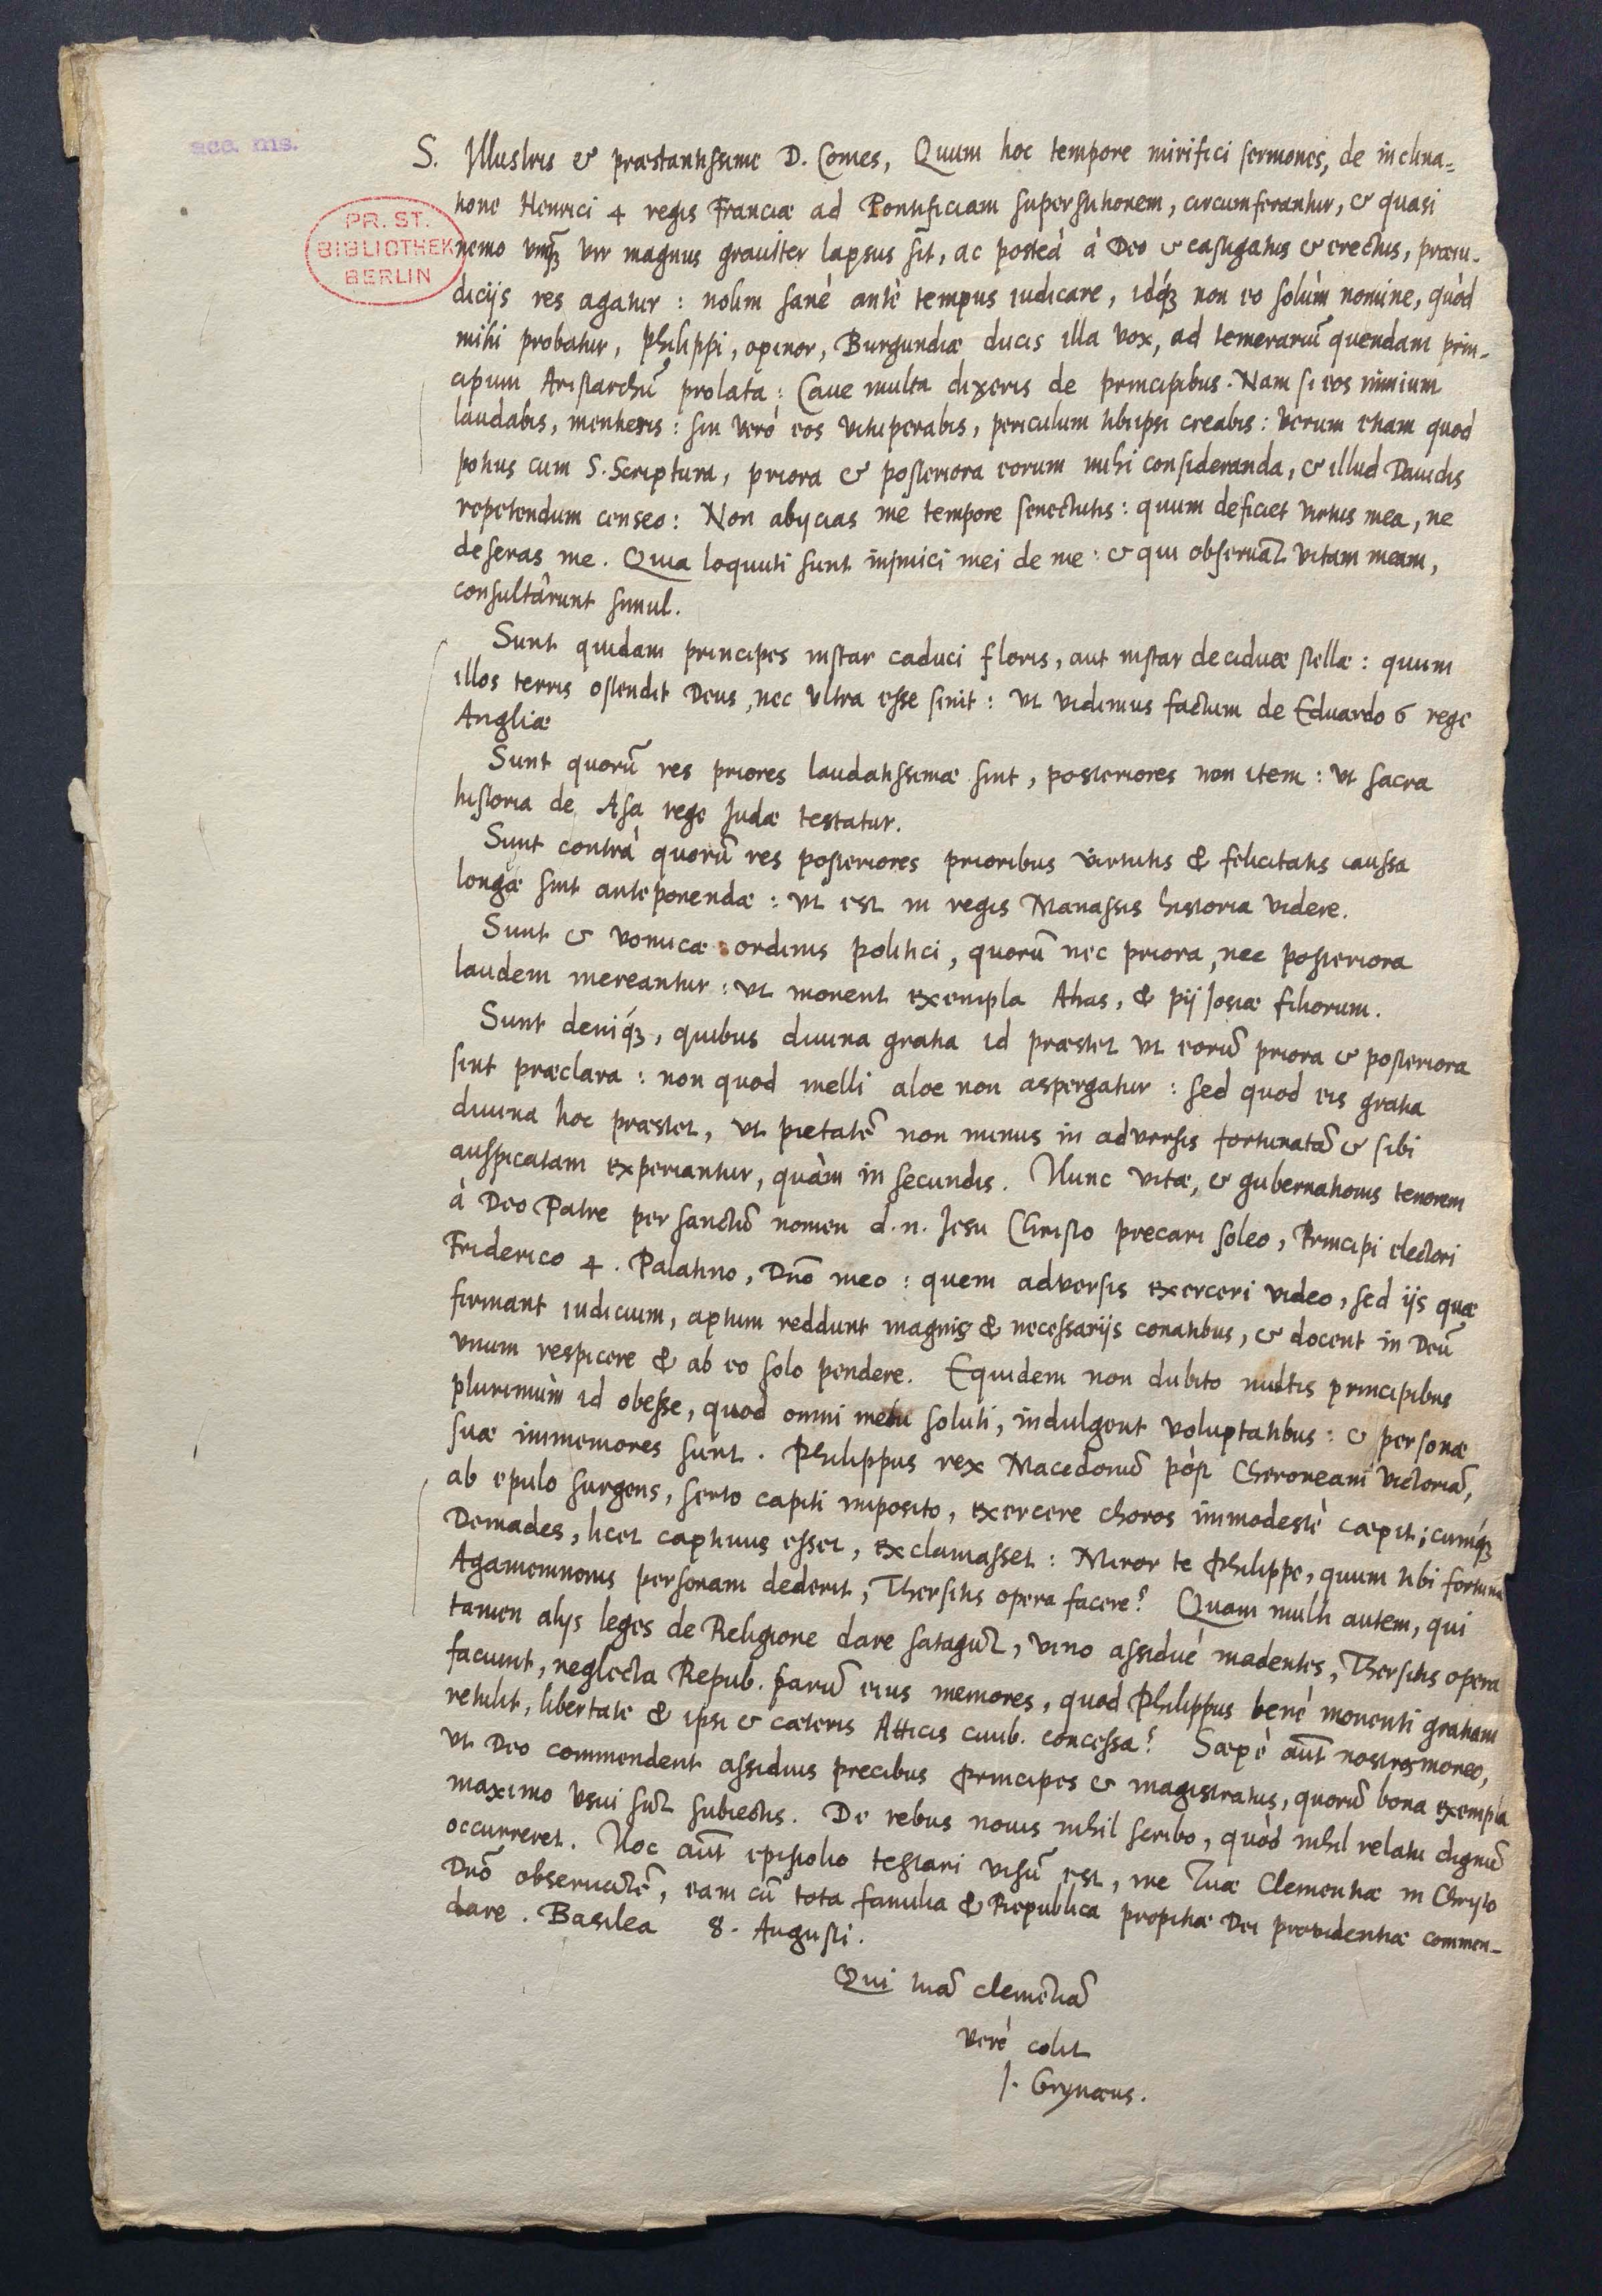 acc. ms.
PR. ST.
BIBLIOTHEK
BERLIN
S. Illustris & præstantissime D. Comes, Quum hoc tempore mirifici sermones, de inclina-
tione Henrici 4 regis Franciæ ad Pontificiam superstitionem, circumferantur, & quasi
nemo vnq̃ vir magnus grauiter lapsus sit, ac posteà à Deo & castigatus & erectus, præiu-
dicijs res agatur: nolim sanè antè tempus iudicare, idq́ꝫ non eo solùm nomine, quòd
mihi probatur, Philippi, opinor, Burgundiæ ducis illa vox, ad temerariũ quendam prin-
cipum Aristarchũ prolata: Caue multa dixeris de principibus. Nam si eos nimium
laudabis, mentieris: sin verò eos vituperabis, periculum tibiipsi creabis: verum etiam quod
potius cum S. Scriptura, priora & posteriora eorum mihi consideranda, & illud Dauidis
repetendum censeo: Non abijcias me tempore senectutis: quum deficiet virtus mea, ne
deseras me. Quia loquuti sunt inimici mei de me: & qui obseruãt vitam meam,
consultârunt simul.
Sunt quidam principes instar caduci floris, aut instar deciduæ stellæ: quum
illos terris ostendit Deus, nec vltra esse sinit: vt vidimus factum de Eduardo 6 rege
Angliæ
Sunt quorũ res priores laudatissimæ sint, posteriores non item: vt sacra
historia de Asa rege Iudæ testatur.
Sunt contrà quorũ res posteriores prioribus virtutis & felicitatis caussa
longæ sint anteponendæ: vt est in regis Manassis historia videre.
Sunt & vomicæ ordinis politici, quorũ nec priora, nec posteriora
laudem mereantur: vt monent exempla Ahas, & pij Iosiæ filiorum.
Sunt deniq́ꝫ, quibus diuina gratia id præstet vt eorũ priora & posteriora
sint præclara: non quod melli aloe non aspergatur: sed quod eis gratia
diuina hoc præstet, vt pietatẽ non minus in adversis fortunatã & sibi
auspicatam experiantur, quàm in secundis. Hunc vitæ, & gubernationis tenorem
à Deo Patre per sanctũ nomen d. n. Jesu Christo precari soleo, Principi electori
Friderico 4. Palatino, Dño meo: quem adversis exerceri video, sed ijs quæ
firmant iudicium, aptum reddunt magnis & necessarijs conatibus, & docent in Deũ
vnum respicere & ab eo solo pendere. Equidem non dubito multis principibus
plurimùm id obesse, quod omni metu soluti, indulgent voluptatibus: & personæ
suæ immemores sunt. Philippus rex Macedonũ pòst Cheroneam victoriã,
ab epulo surgens, serto capiti imposito, exercere choros immodestè cæpit; cumq́ꝫ
Demades, licet captiuus esset, exclamasset: Miror te Philippe, quum tibi fortuna
Agamemnonis personam dederit, Thersitis opera facere? Quam multi autem, qui
tamen alijs leges de Religione dare satagũt, vino assiduè madentes, Thersitis opera
faciunt, neglecta Repub. parũ eius memores, quod Philippus benè monenti gratiam
retulit, libertate & ipsi & cæteris Atticis ciuib. concessa? Sæpè aũt nostros moneo,
vt Deo commendent assiduis precibus Principes & magistratus, quorũ bona exempla
maximo vsui sũt subiectis. De rebus nouis nihil scribo, quòd nihil relatu dignũ
occurreret. Hoc aũt epistolio testari visũ est, me Tuæ Clementiæ in Christo
Dño obseruãtẽ, eam cũ tota familia & Republica propitiæ Dei providentiæ commen-
dare. Basilea 8. Augusti.
Qui tuã clemẽtiã
verè colit
J. Grynæus.